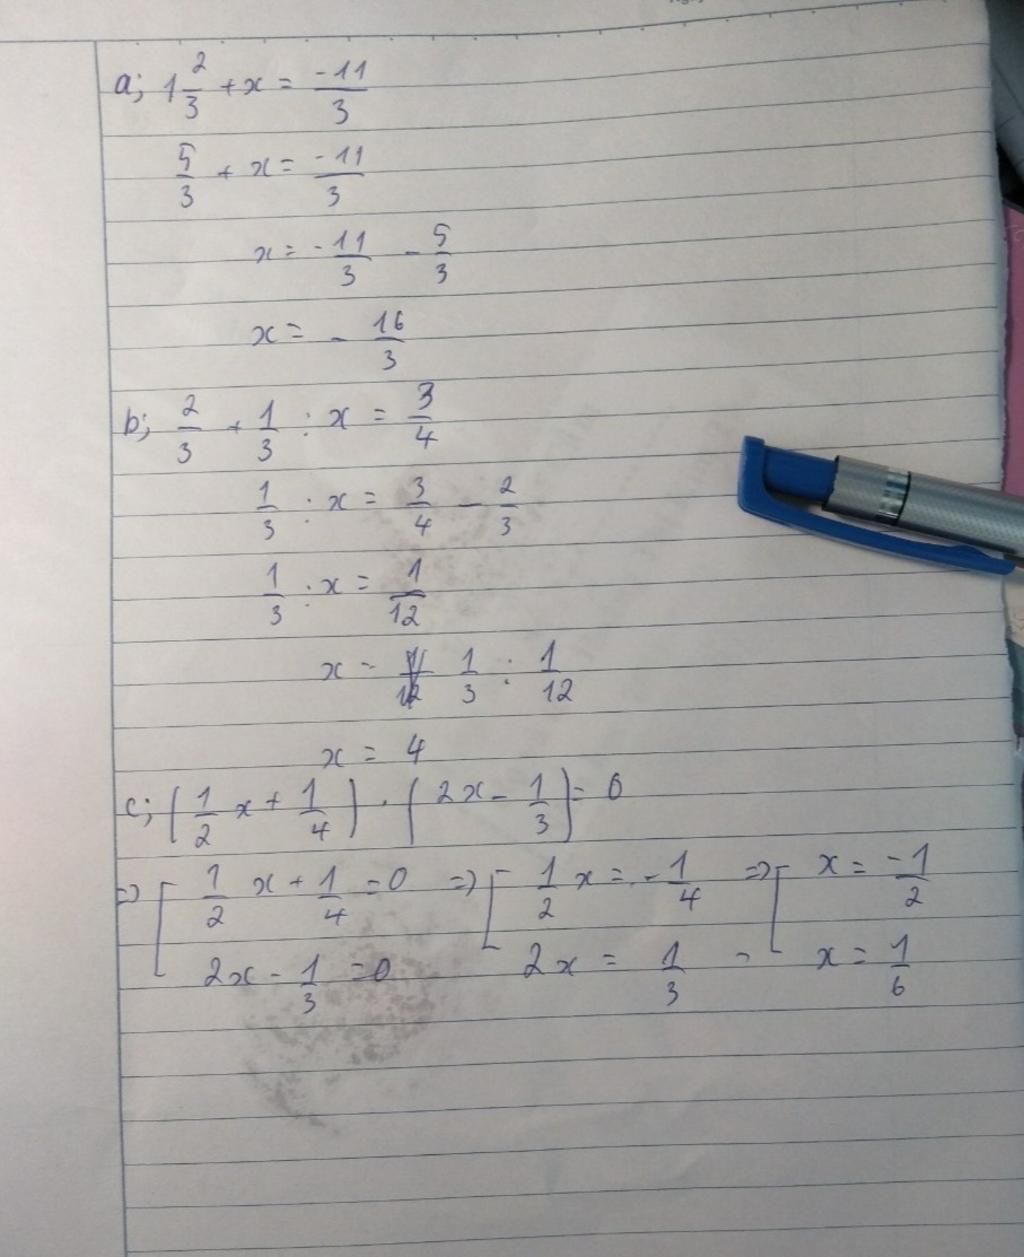 a; 1 2/3 + x = -11/3
5/3 + x = -11/3
x = -11/3 - 5/3
x = - 16/3
b; 2/3 + 1/3 : x = 3/4
1/3 : x = 3/4 - 2/3
1/3 : x = 1/12
x = 1/3 : 1/12
x = 4
c; (1/2 x + 1/4) . (2x - 1/3) = 0
=> [ 1/2 x + 1/4 = 0 => [ 1/2 x = - 1/4 => [ x = -1/2
2x - 1/3 = 0 2x = 1/3 x = 1/6